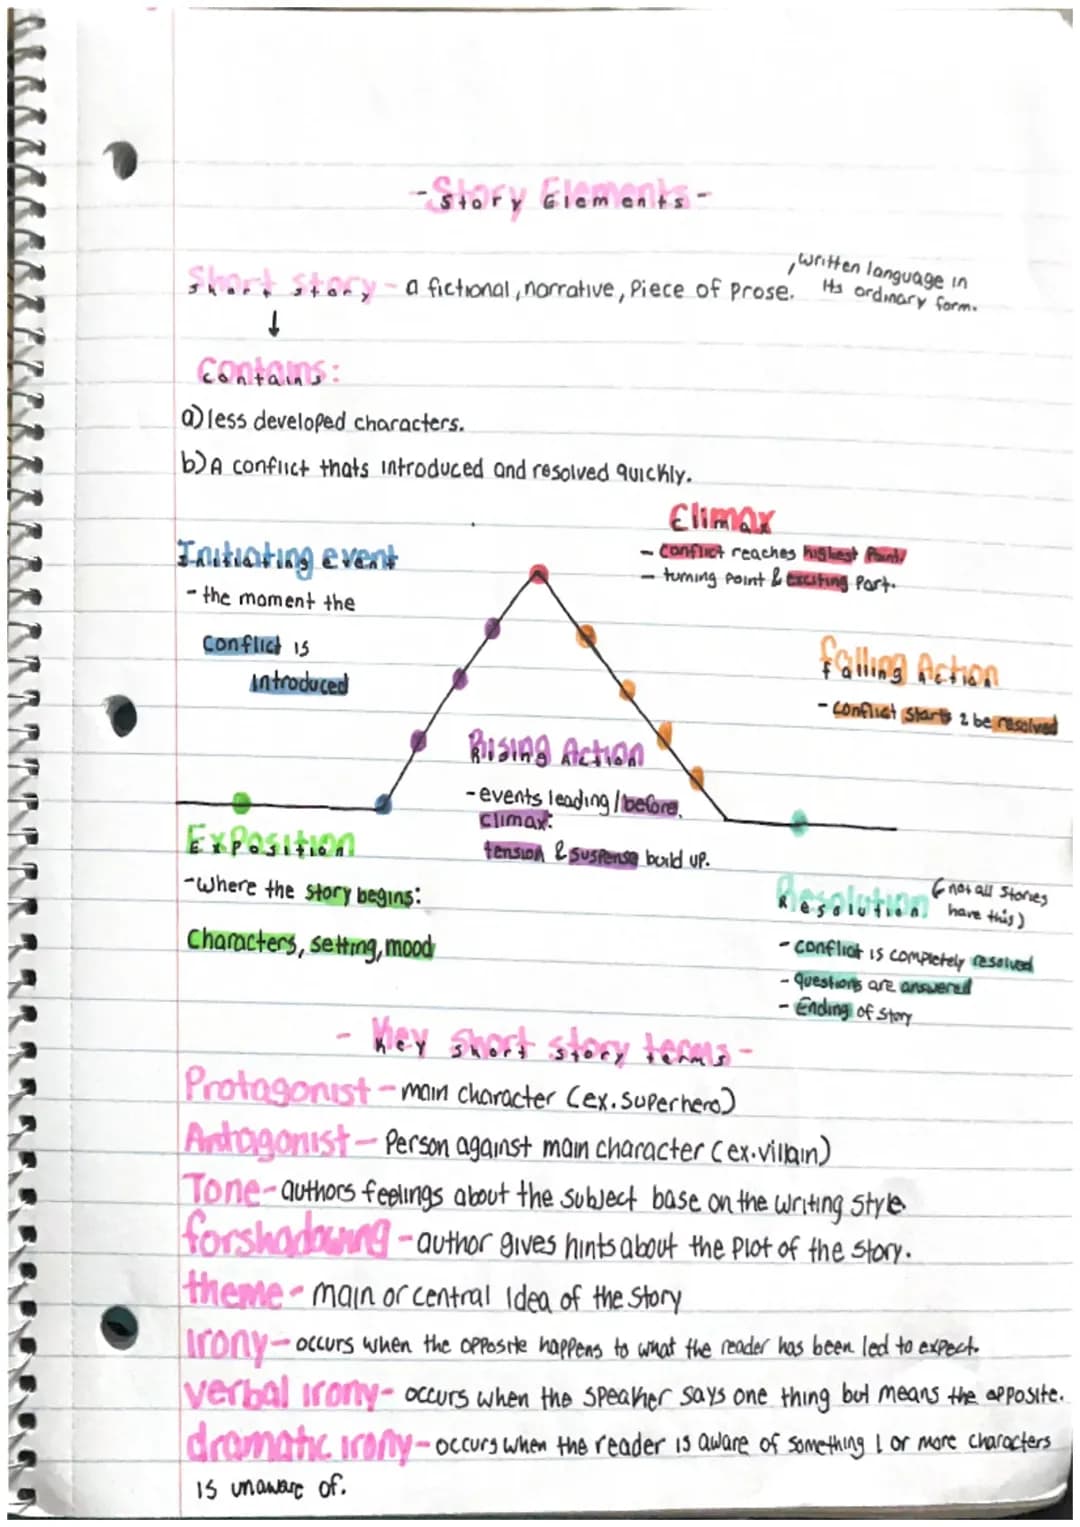 - Story Elements -
Short story - a fictional, narrative, Piece of Prose.
, written language in
its ordinary form.
↓
Contains:
a) less developed characters.
b) A conflict thats introduced and resolved quickly.
Climax
- Conflict reaches highest Point,
- turning point & exciting Part.
Initiating event
- the moment the
Conflict is
introduced
falling Action
- conflict starts 2 be resolved
Rising Action
- events leading / before
climax:
tension & suspense build up.
Exposition
- where the story begins:
Characters, setting, mood
Resolution (not all stories
have this)
- conflict is completely resolved
- questions are answered
- Ending of story
- Key short story terms -
Protagonist - main character (ex. superhero)
Antagonist - Person against main character (ex. villain)
Tone - authors feelings about the subject base on the writing style
forshadowing - author gives hints about the Plot of the story.
theme - main or central Idea of the story
Irony - occurs when the opposite happens to what the reader has been led to expect.
verbal irony - occurs when the speaker says one thing but means the opposite.
dramatic irony - occurs when the reader is aware of something 1 or more characters
is unaware of.